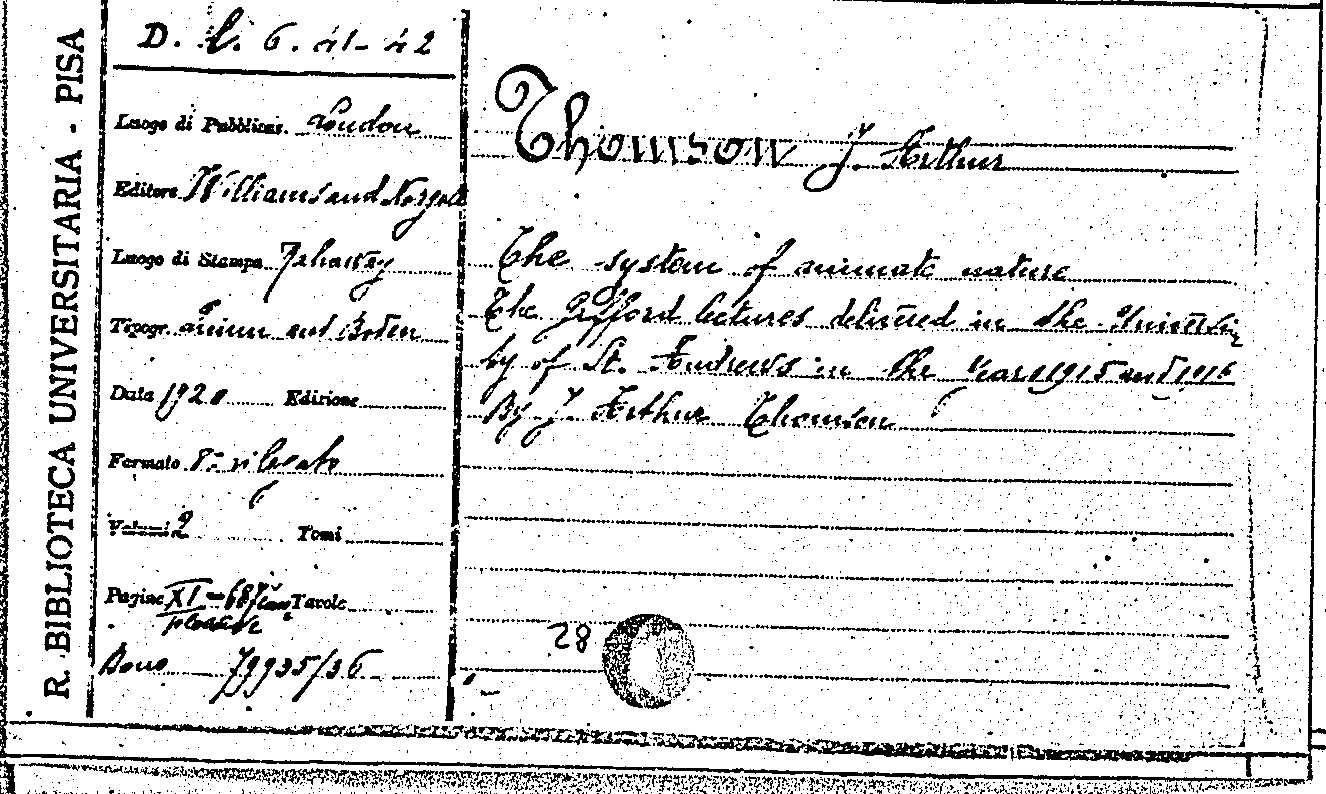 R. BIBLIOTECA UNIVERSITARIA - PISA
D. l. 6. 41-42
Luogo di Pubblicas. London
Editore Williams and Norgate
Luogo di Stampa
Tipogr. and Boden
Data 1920 Edizione
Formato 8° rilegato
Volumi 2 Tomi
Pagine XI-687 Tavole
Dono 79935/36
Thomson J. Arthur
The system of animate nature
The Gifford lectures delivered in the Universi
ty of St. Andrews in the Years 1915 and 1916
By J. Arthur Thomson
28